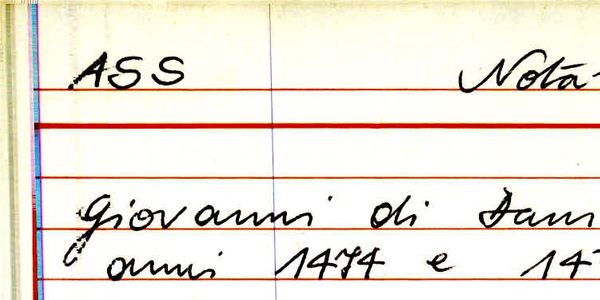 ASS Nota
Giovanni di
anni 1474 e